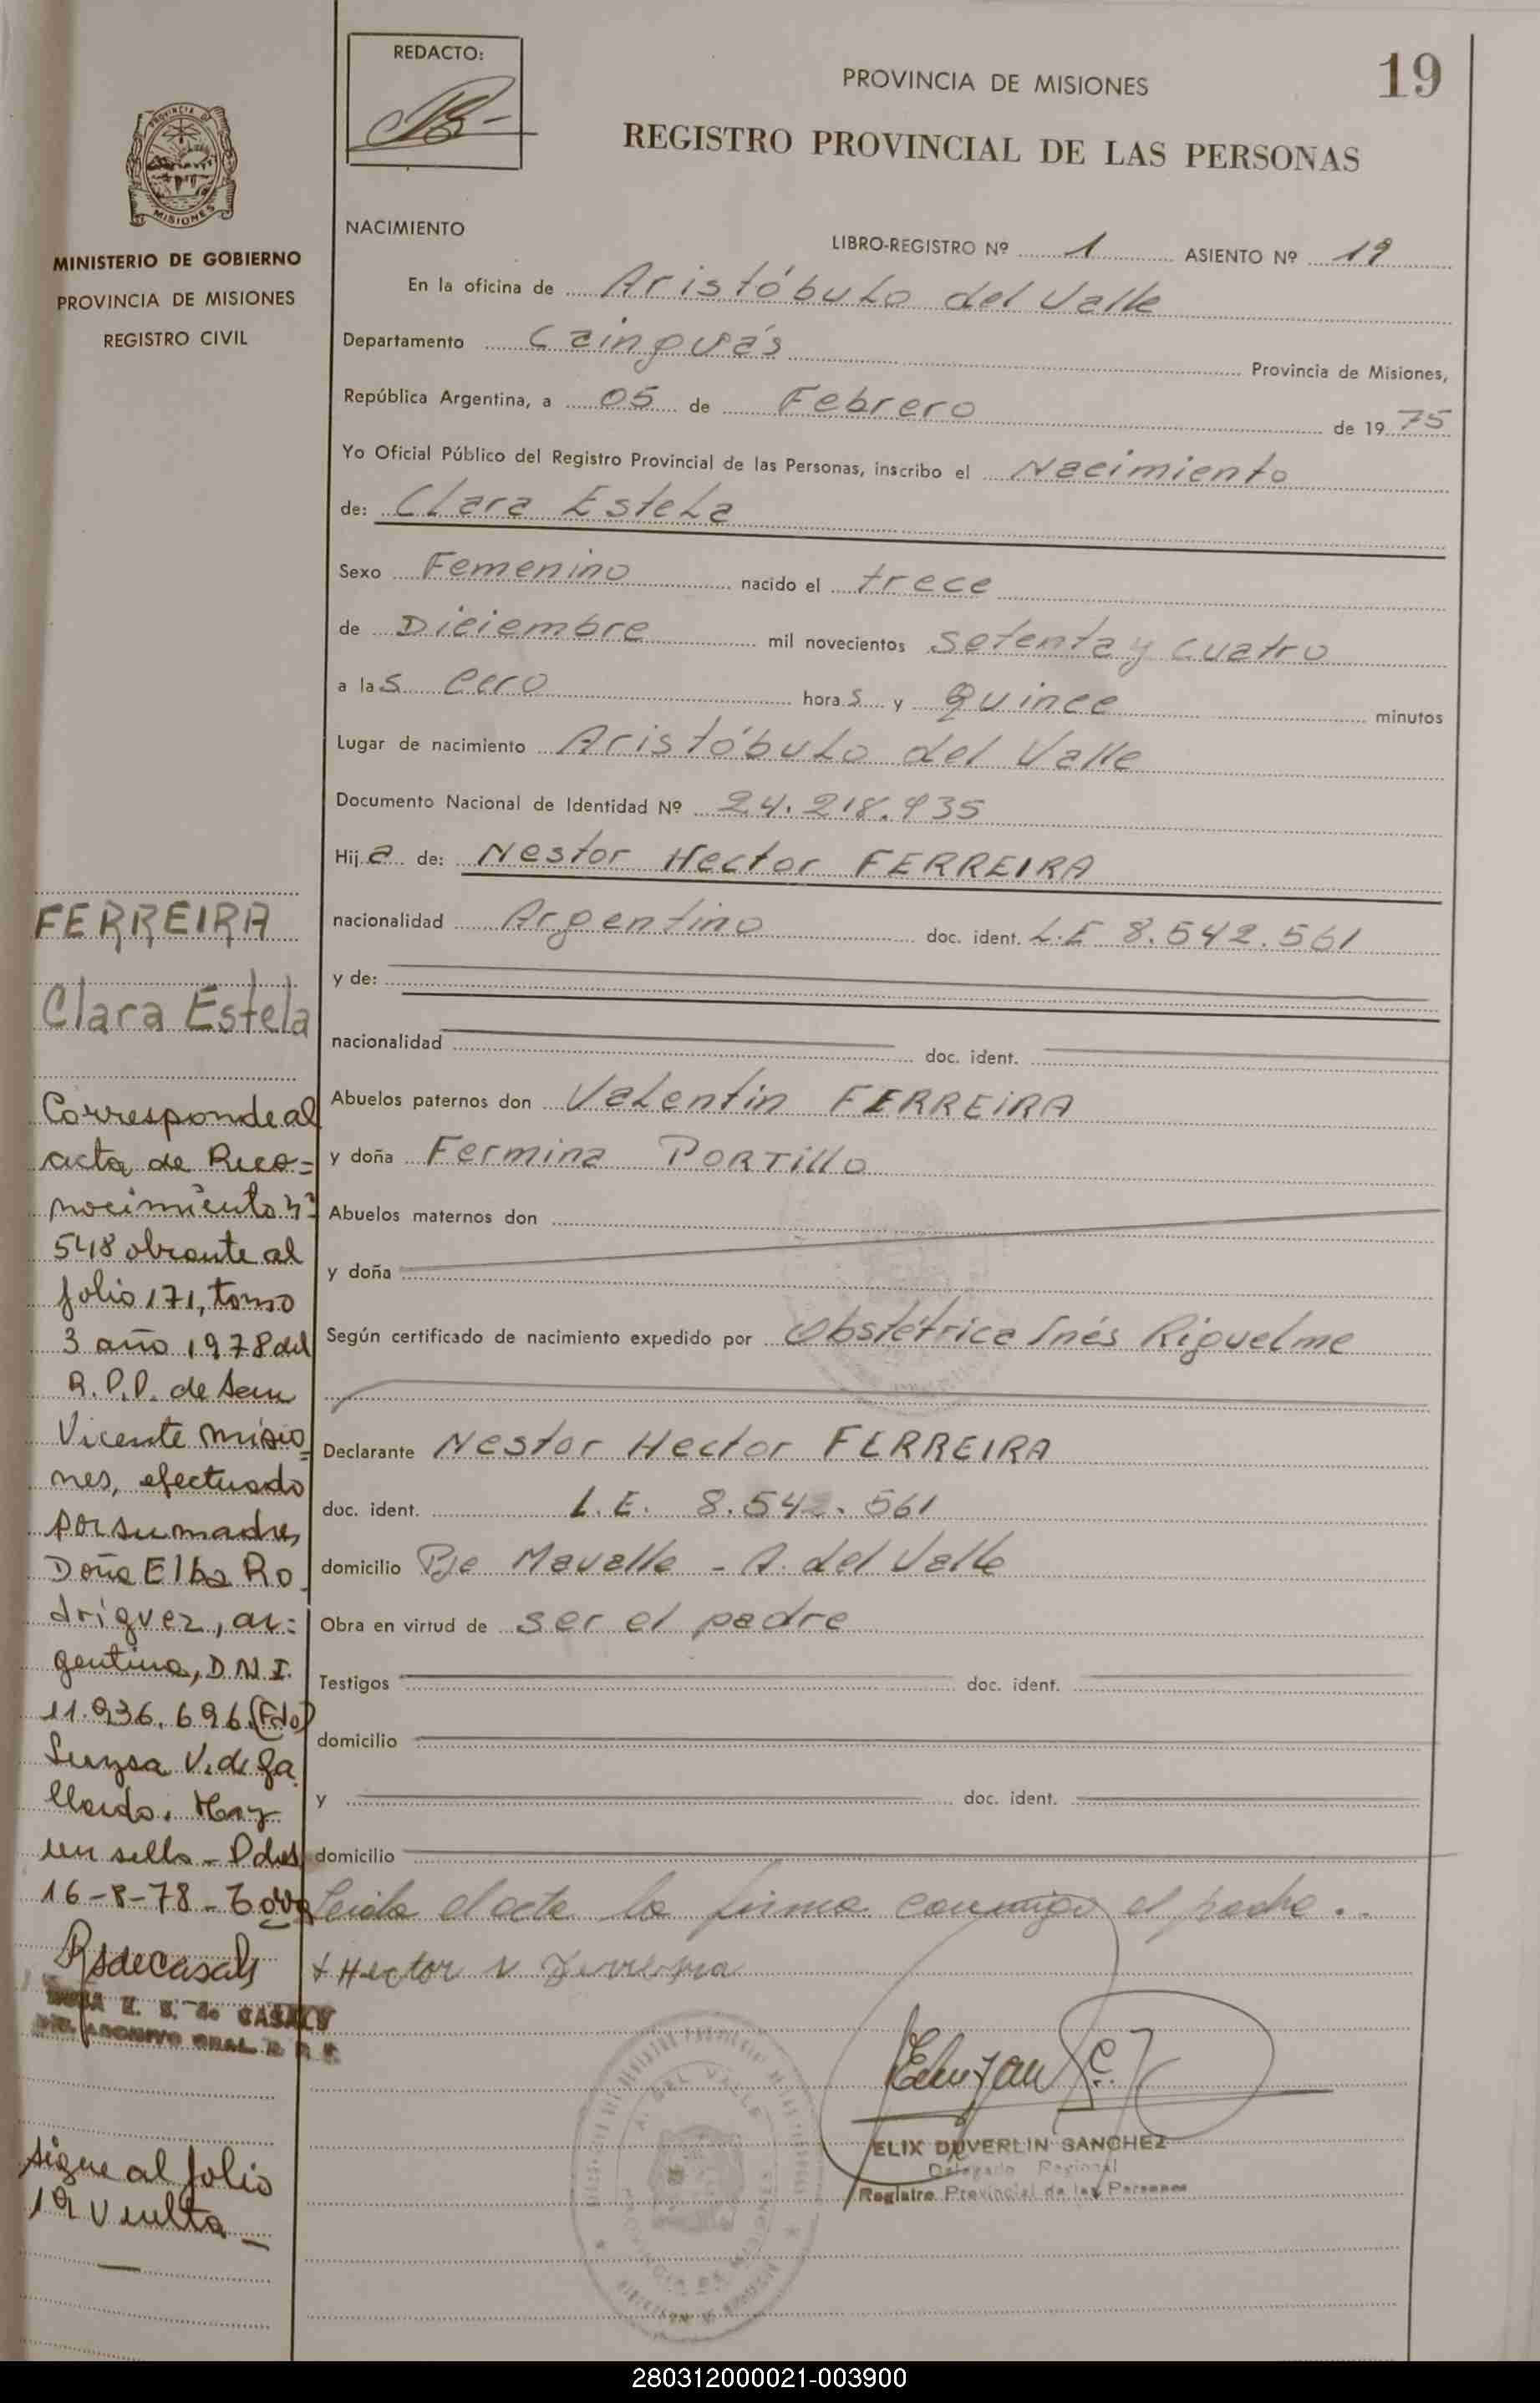 REDACTO:
PROVINCIA DE MISIONES
19
REGISTRO PROVINCIAL DE LAS PERSONAS
PROVINCIA DE
MISIONES
MINISTERIO DE GOBIERNO
PROVINCIA DE MISIONES
REGISTRO CIVIL
NACIMIENTO
LIBRO-REGISTRO Nº 1 ASIENTO Nº 19
En la oficina de Aristóbulo del Valle
Departamento Cainguás Provincia de Misiones,
República Argentina, a 05 de Febrero de 1975
Yo Oficial Público del Registro Provincial de las Personas, inscribo el Nacimiento
de: Clara Estela
Sexo Femenino nacido el trece
de Diciembre mil novecientos setenta y cuatro
a las cero horas y Quince minutos
Lugar de nacimiento Aristóbulo del Valle
Documento Nacional de Identidad Nº 24.218.935
Hija de: Nestor Hector FERREIRA
nacionalidad Argentino doc. ident. L.E 8.542.561
y de:
nacionalidad doc. ident.
Abuelos paternos don Valentin FERREIRA
y doña Fermina PORTILLO
Abuelos maternos don
y doña
Según certificado de nacimiento expedido por Obstétrica Inés Riguelme
Declarante Nestor Hector FERREIRA
doc. ident. L.E. 8.542.561
domicilio Pje Mavalle - A. del Valle
Obra en virtud de ser el padre
Testigos doc. ident.
domicilio
y doc. ident.
domicilio
Leida el acta la firma conmigo el padre..
+ Hector N Ferreira
ELIX DUVERLIN SANCHEZ
Delegado Regional
Registro Provincial de las Personas
FERREIRA
Clara Estela
Corresponde al
acta de Reco=
nocimiento nº
548 obrante al
folio 171, tomo
3 año 1978 del
R.P.P. de San
Vicente Misio=
nes, efectuado
por su madre,
Doña Elba Ro
driguez, ar=
gentina, D.N.I.
11.936.696.(Fdo)
V. de Ga
llardo. Hay
un sello - Pdas
16-8-78-
RsdeCasals
E. S. de CASALS
DIR. ARCHIVO GRAL. R. P. P.
sigue al folio
19 vuelta -
280312000021-003900